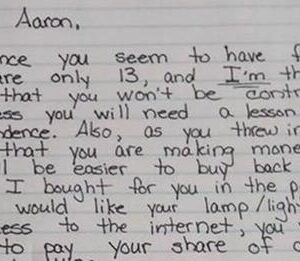 Aaron,
nce you seem to have
re only 13, and I'm th
that you won't be contr
ess you will need a lesson
dence. Also, as you threw in
that you are making mone
l be easier to buy back
I bought for you in the p
would like your lamp/ligh
ess to the internet, you
to pay your share of